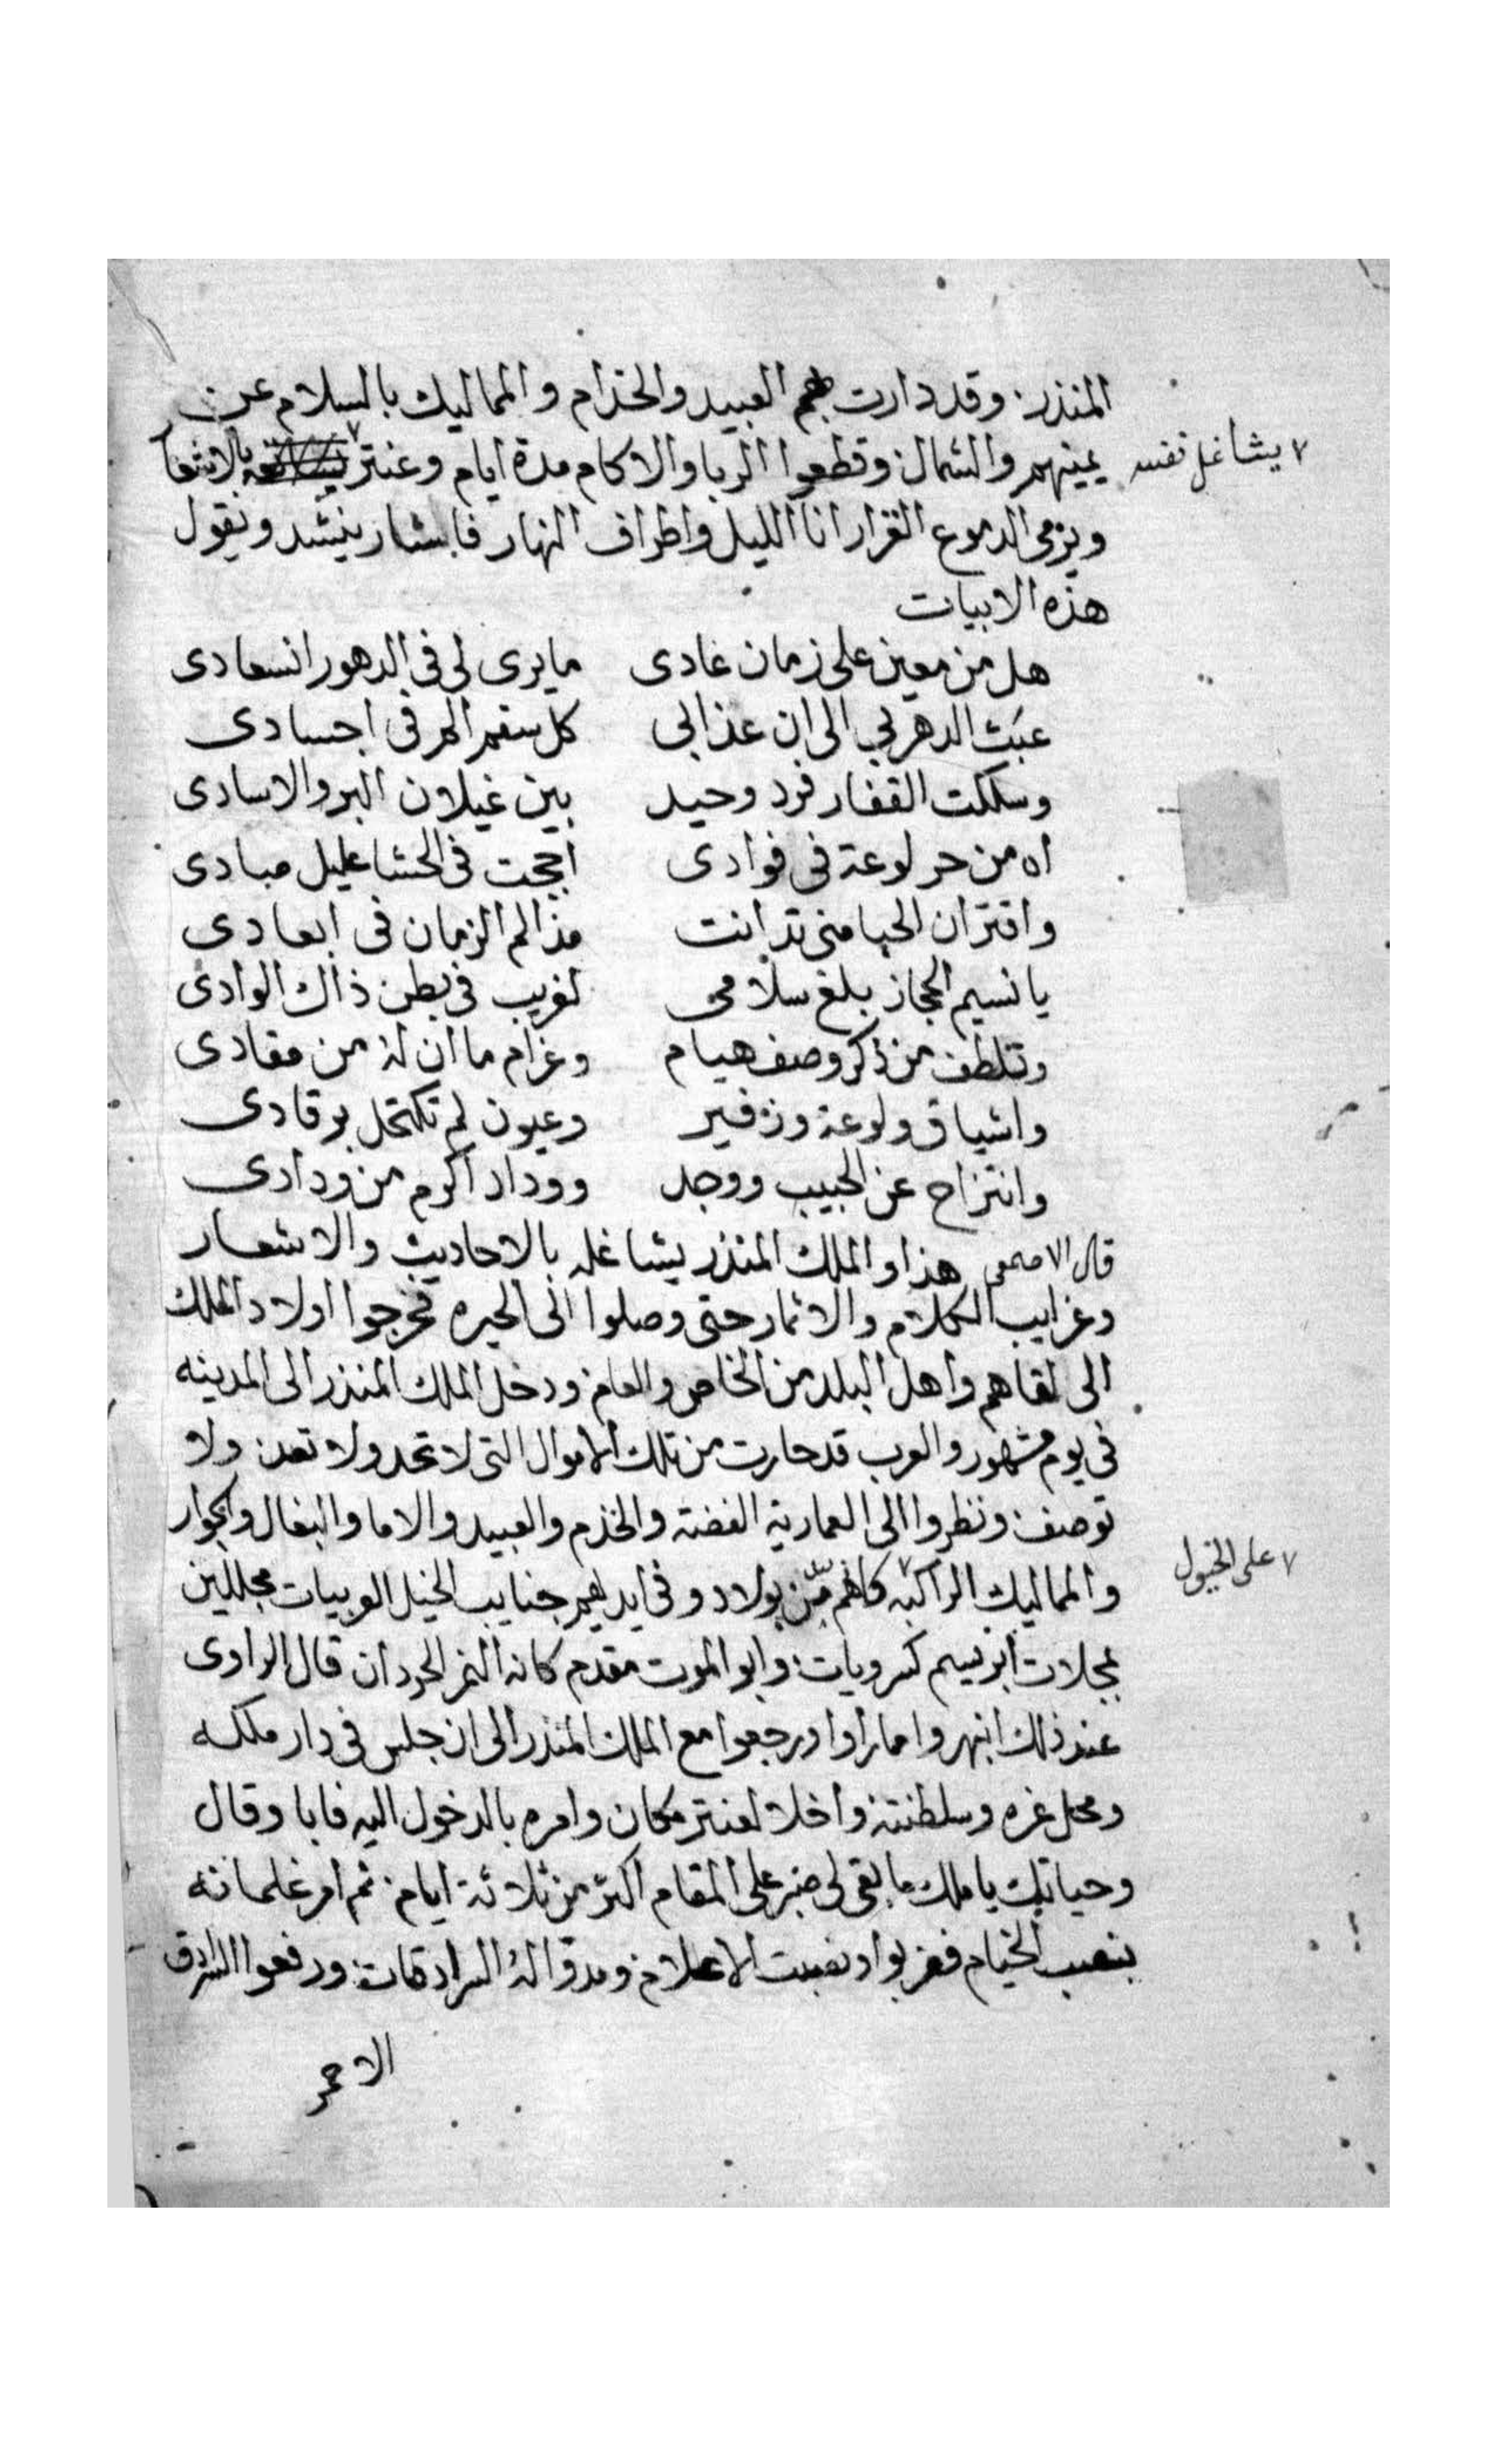 المنذر. وقد دارت بهم العبيد والخدام والمماليك بالسلام عن
يمينهم والشمال. وقطعوا الربا والاكام مدة ايام وعنتر بالاشعا
٧ يشاغل نفسه
ويرمى الدموع الغزار انا الليل واطراف النهار فاشار ينشد ويقول
هذه الابيات
هل من معين على زمان عادى مايرى لى فى الدهور انسعادى
عبث الدهر بى الى ان عذابى كل سقم المر فى اجسادى
وسلكت القفار فرد وحيد بين غيلان البر والاسادى
اه من حر لوعة فى فوادى اججت فى الحشا غليل مبادى
واقتران الحيا منى تدانت مذ الم الزمان فى ابعادى
يا نسيم الحجاز بلغ سلامى لغريب فى بطن ذاك الوادى
وتلطف من ذكر وصف هيام وغرام ما ان له من مقادى
واشياق ولوعة وزفير وعيون لم تكتحل برقادى
وانتزاح عن الحبيب ووجد ووداد اكرم من ودادى
قال الاصمعى هذا والملك المنذر يشاغله بالاحاديث والاشعار
وغرايب الكلام والاثمار حتى وصلوا الى الحيره فخرجوا اولاد الملك
الى لقاهم واهل البلد من الخاص والعام. ودخل الملك المنذر الى المدينه
فى يوم مشهور والعرب قد حارت من تلك الاموال التى لا تحد ولا تعد. ولا
توصف. ونظروا الى العمارية الفضة والخدم والعبيد والاما والبغال والجوار
والمماليك الراكبه كانهم من بولاد وفى ايديهم جنايب الخيل العربيات مجللين
٧ على الخيول
بجلات ابريسم كسرويات. وابو الموت مقدم كانه النمر الحردان قال الراوى
عند ذلك انبهروا مما راوا ورجعوا مع الملك المنذر الى ان جلس فى دار ملكه
ومحل عزه وسلطنته واخلا لعنتر مكان وامره بالدخول اليه فابا وقال
وحياتك يا ملك ما بقى لى صبر على المقام اكثر من ثلاثة ايام. ثم امر غلمانه
بنصب الخيام فضربوا ونصبت الاعلام. ومدوا له السرادقات. ورفعوا السرادق
الاحمر